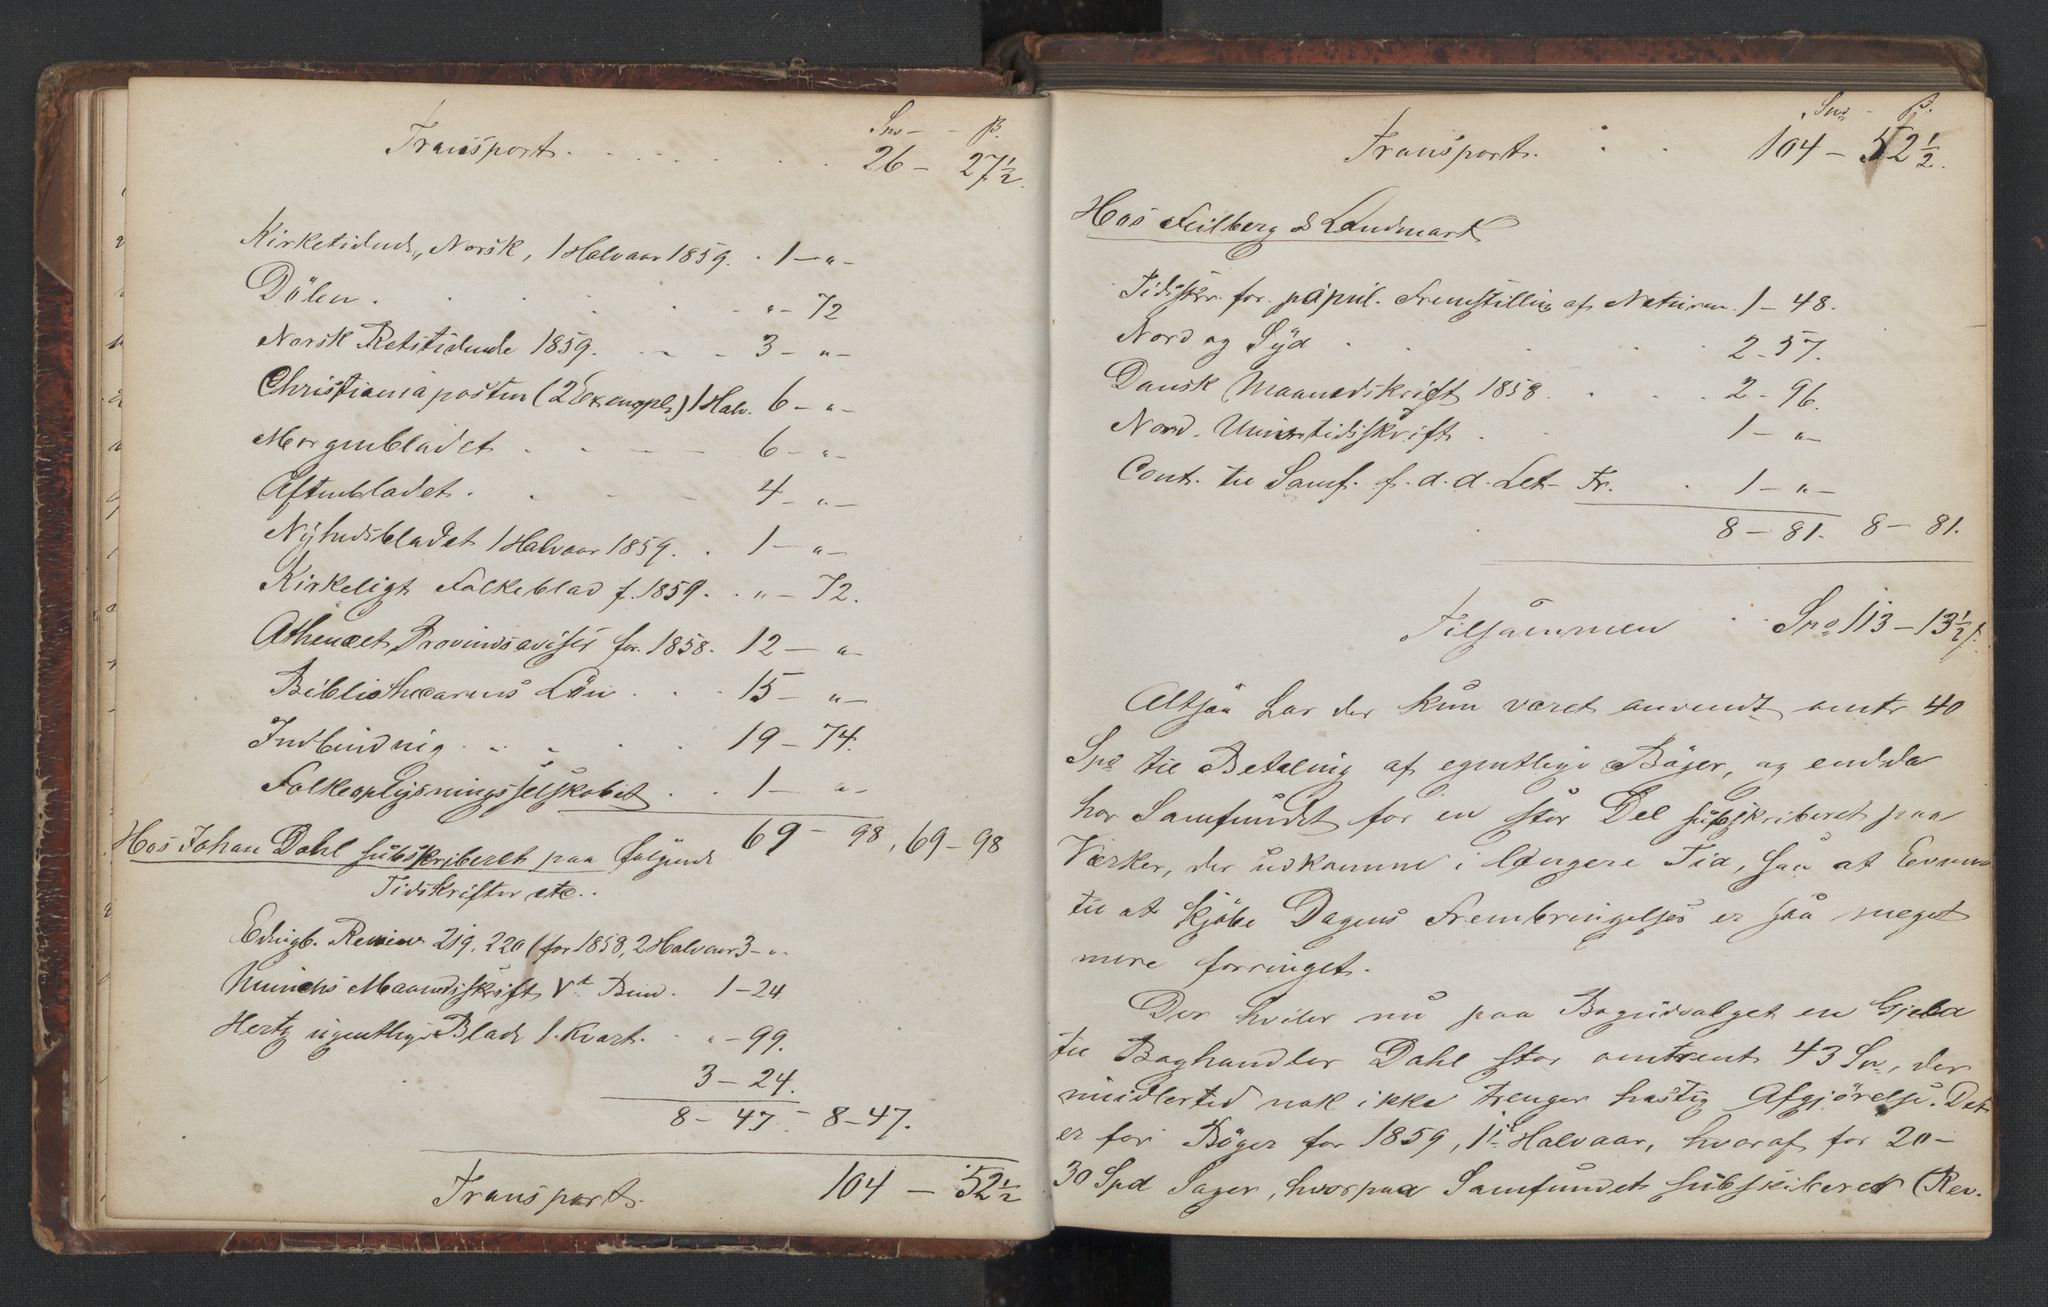 Spd – ß.
Transport. . . . . . . . 26 – 27½.
Kirketidende, Norsk, 1 Halvaar 1859. . 1 – „ –
Dölen . . . . . „ – 72
Norsk Retstidende 1859. . . . 3 – „ –
Christianiaposten (2 Exempl.) 1 Halv. 6 – „ –
Morgenbladet . . . . . 6 – „ –
Aftenbladet . . . . . 4 – „ –
Nyhedsbladet 1 Halvaar 1859. . . 1 – „ –
Kirkeligt Folkeblad f. 1859. . „ – 72.
Athenæet, Provindsaviser for 1858. 12 – „ –
Bibliothecarens Lön . . . 15 – „ –
Indbinding . . . . . 19 – 74.
Folkeoplysningsselskabet . . 1 – „ –
69 – 98, 69 – 98
Hos Johan Dahl subskriberet paa følgende
Tidskrifter etc..
Edingb. Review 219. 220 (for 1858, 2 Halvaar 3 – „ –
Munchs Maanedsskrift Vt Bind. 1 – 24
Hertz ugentlige Blade 1. Kvart. . „ – 99.
3 – 24.
8 – 47 – 8 – 47.
Transport. 104 – 52½
Spd – ß.
Transport. . . 104 – 52½.
Hos Feilberg & Landmark
Tidsskr. for popull. Fremstilling af Naturen. 1 – 48.
Nord og Syd . . . . . 2 – 57.
Dansk Maanedskrift 1858. . . . 2 – 96.
Nord. Univ. tidsskrift . . 1 – „ –
Cont. til Samf. f. d. d. Lit. Fr. . 1 – „ –
8 – 81. 8 – 81.
Tilsammen . Spd 113 – 13½ ß.
Altsaa har der kun været anvendt omtr 40
Spd til Betaling af egentlige Bøger, og endda
har Samfundet for en stor Del subskriberet paa
Værker, der udkomme i længere Tid, saa at Evnen
til at kjøbe Dagens Frembringelser er saa meget
mere forringet.
Der hviler nu paa Bogudvalget en Gjeld
til Boghandler Dahl stor omtrent 43 Spd, der
midlertid nok ikke trenger hastig Afgjörelse. Det
er for Bøger for 1859, 1ste Halvaar, hvoraf for 20–
30 Spd Sager, hvorpaa Samfundet subskiberet (Rev.